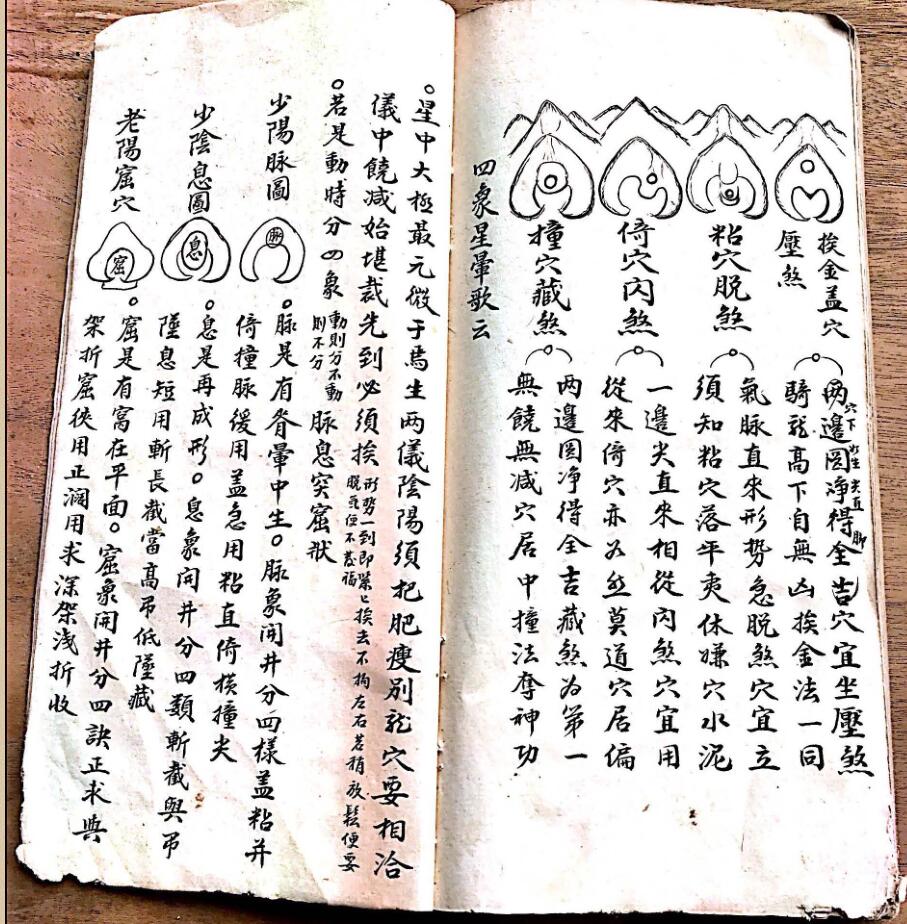 挨金盖穴
壓煞
两邊圆淨得全吉穴宜坐壓煞
穴下
尖直
脚
騎龍高下自無凶挨金法一同
粘穴脱煞
氣脉直來形势急脱煞穴宜立
須知粘穴落平夷休嫌穴水泥
倚穴闪煞
一邊尖直來相從闪煞穴宜用
從來倚穴亦为然莫道穴居偏
撞穴藏煞
两邊圆淨得全吉藏煞为第一
無饒無减穴居中撞法奪神功
四象星暈歌云
星中大極最元微于焉生两儀陰陽須把肥瘦别龍穴要相洽
儀中饒减始堪裁先到必須挨
形势一到即紧紧挨去不拘左右若稍放鬆便要
脱氣便不發福
若是動時分四象
動則分不動
則不分
脉息突窟狀
少陽脉圖
脉
脉是有脊暈中生。脉象開井分四樣盖粘并
倚撞脉缓用盖急用粘直倚横撞尖
少陰息圖
息
息是再成形。息象開井分四類斬截與吊
墜息短用斬長截當高吊低墜藏
老陽窟穴
窟
窟是有窩在平面。窟象開井分四訣正求與
架折窟狹用正濶用求深架浅折收